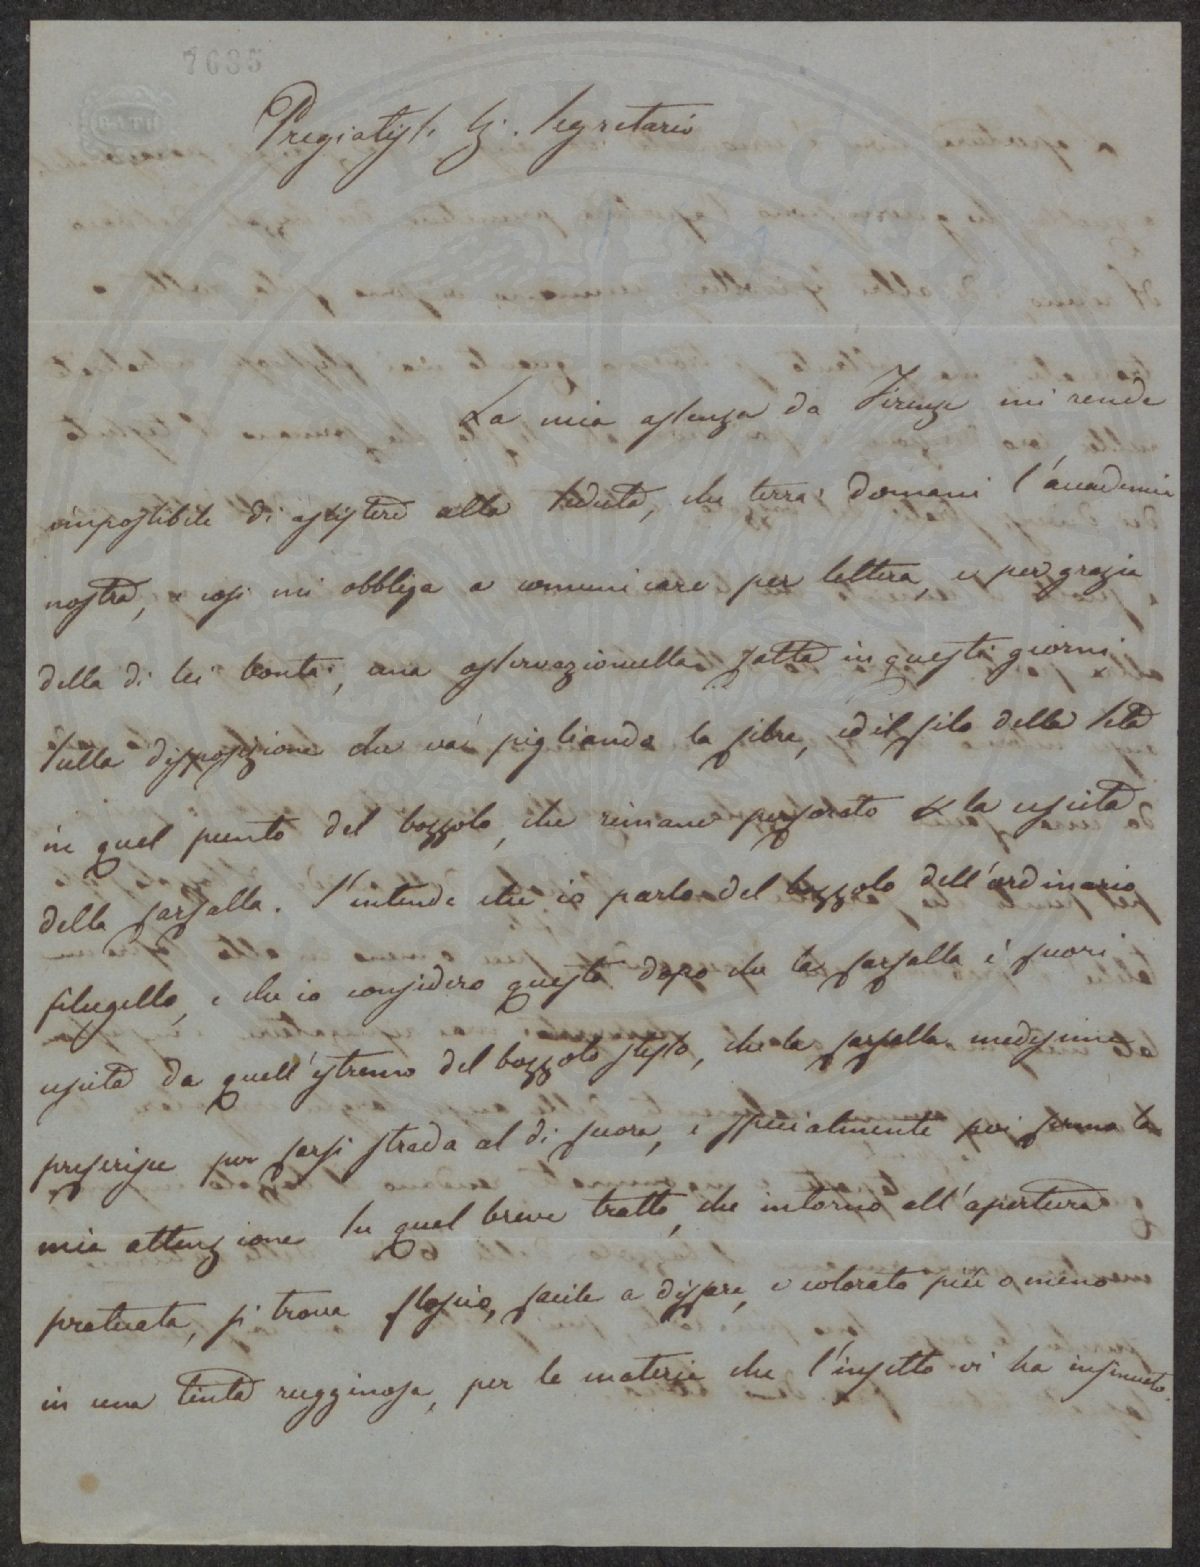 7685
BATH
Pregiatiss. Sig. Segretario
La mia assenza da Firenze mi rende
impossibile di assistere alla seduta, che terrà domani l'accademia
nostra, e così mi obbliga a comunicare per lettera, e per grazia
della di lei bontà, una osservazioncella fatta in questi giorni
sulla disposizione che và pigliando la fibra, ed il filo della seta
in quel punto del bozzolo, che rimane perforato x la uscita
della farfalla. S'intende che io parlo del bozzolo dell'ordinario
filugello, e che io considero questo dopo che la farfalla è fuori
uscita da quell'estremo del bozzolo stesso, che la farfalla medesima
preferisce per farsi strada al di fuora, e specialmente poi fermo la
mia attenzione su quel breve tratto, che intorno all'apertura
praticata, si trova floscio, facile a disfare, e colorato più o meno
in una tinta rugginosa, per le materie che l'insetto vi ha insinuato.